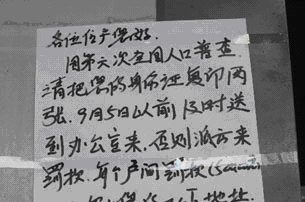 各位住户您好.
因第六次全国人口普查
请把您的身份证复印两
张.9月5日以前及时送
到办公室来.否则派方来
罚款.每个户间罚款150